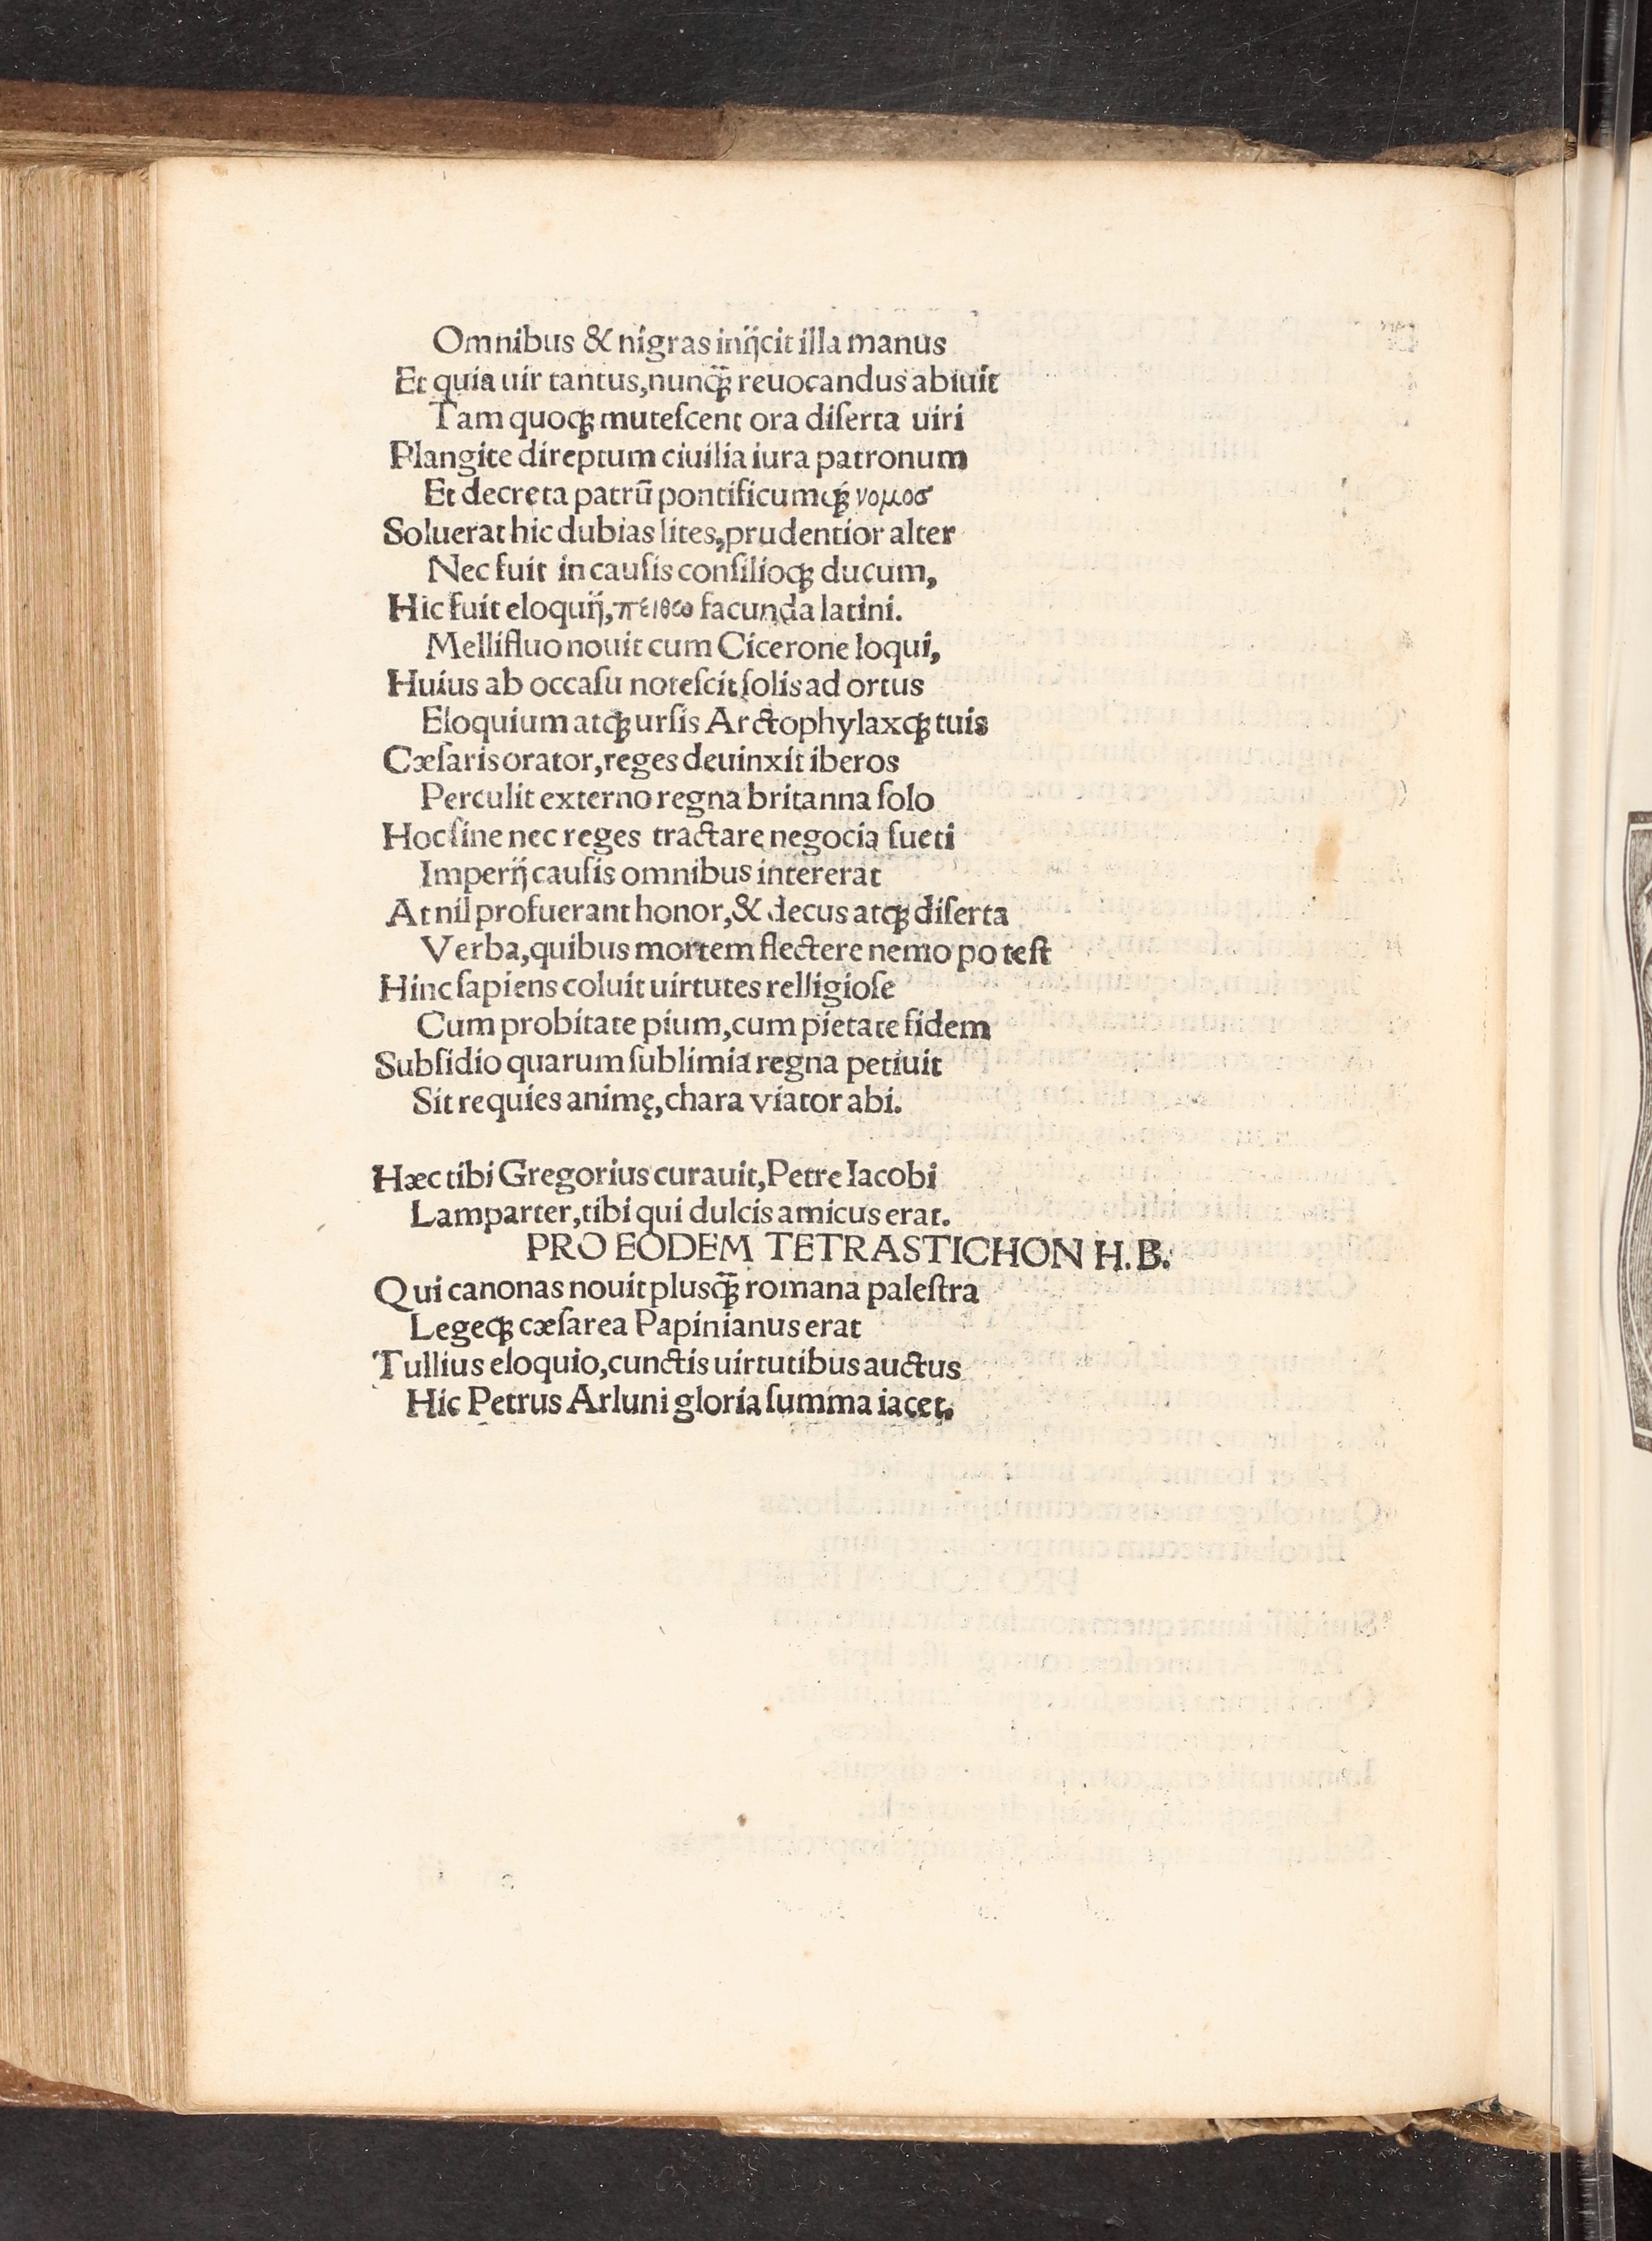 Omnibus & nigras inijcit illa manus
Et quia uir tantus,nunq̃ꝫ reuocandus abiuit
Tam quoqꝫ muteſcent ora diſerta uiri
Plangite direptum ciuilia iura patronum
Et decreta patrū pontificumqꝫ́ νομοσ
Soluerat hic dubias lites,prudentior alter
Nec fuit in cauſis conſilioqꝫ ducum,
Hic fuit eloquij,πειθω facunda latini.
Mellifluo nouit cum Cicerone loqui,
Huius ab occaſu noteſcit ſolis ad ortus
Eloquium atqꝫ urſis Arctophylaxqꝫ tuis
Cæſaris orator,reges deuinxit iberos
Perculit externo regna britanna ſolo
Hoc ſine nec reges tractare negocia ſueti
Imperij cauſis omnibus intererat
At nil profuerant honor,& decus atqꝫ diſerta
Verba,quibus mortem flectere nemo poteſt
Hinc ſapiens coluit uirtutes relligioſe
Cum probitate pium,cum pietate fidem
Subſidio quarum ſublimia regna petiuit
Sit requies animę,chara viator abi.
Hæc tibi Gregorius curauit,Petre Iacobi
Lamparter,tibi qui dulcis amicus erat.
PRO EODEM TETRASTICHON H.B.
Qui canonas nouit plusq̃ꝫ romana paleſtra
Legeqꝫ cæſarea Papinianus erat
Tullius eloquio,cunctis uirtutibus auctus
Hic Petrus Arluni gloria ſumma iacet.